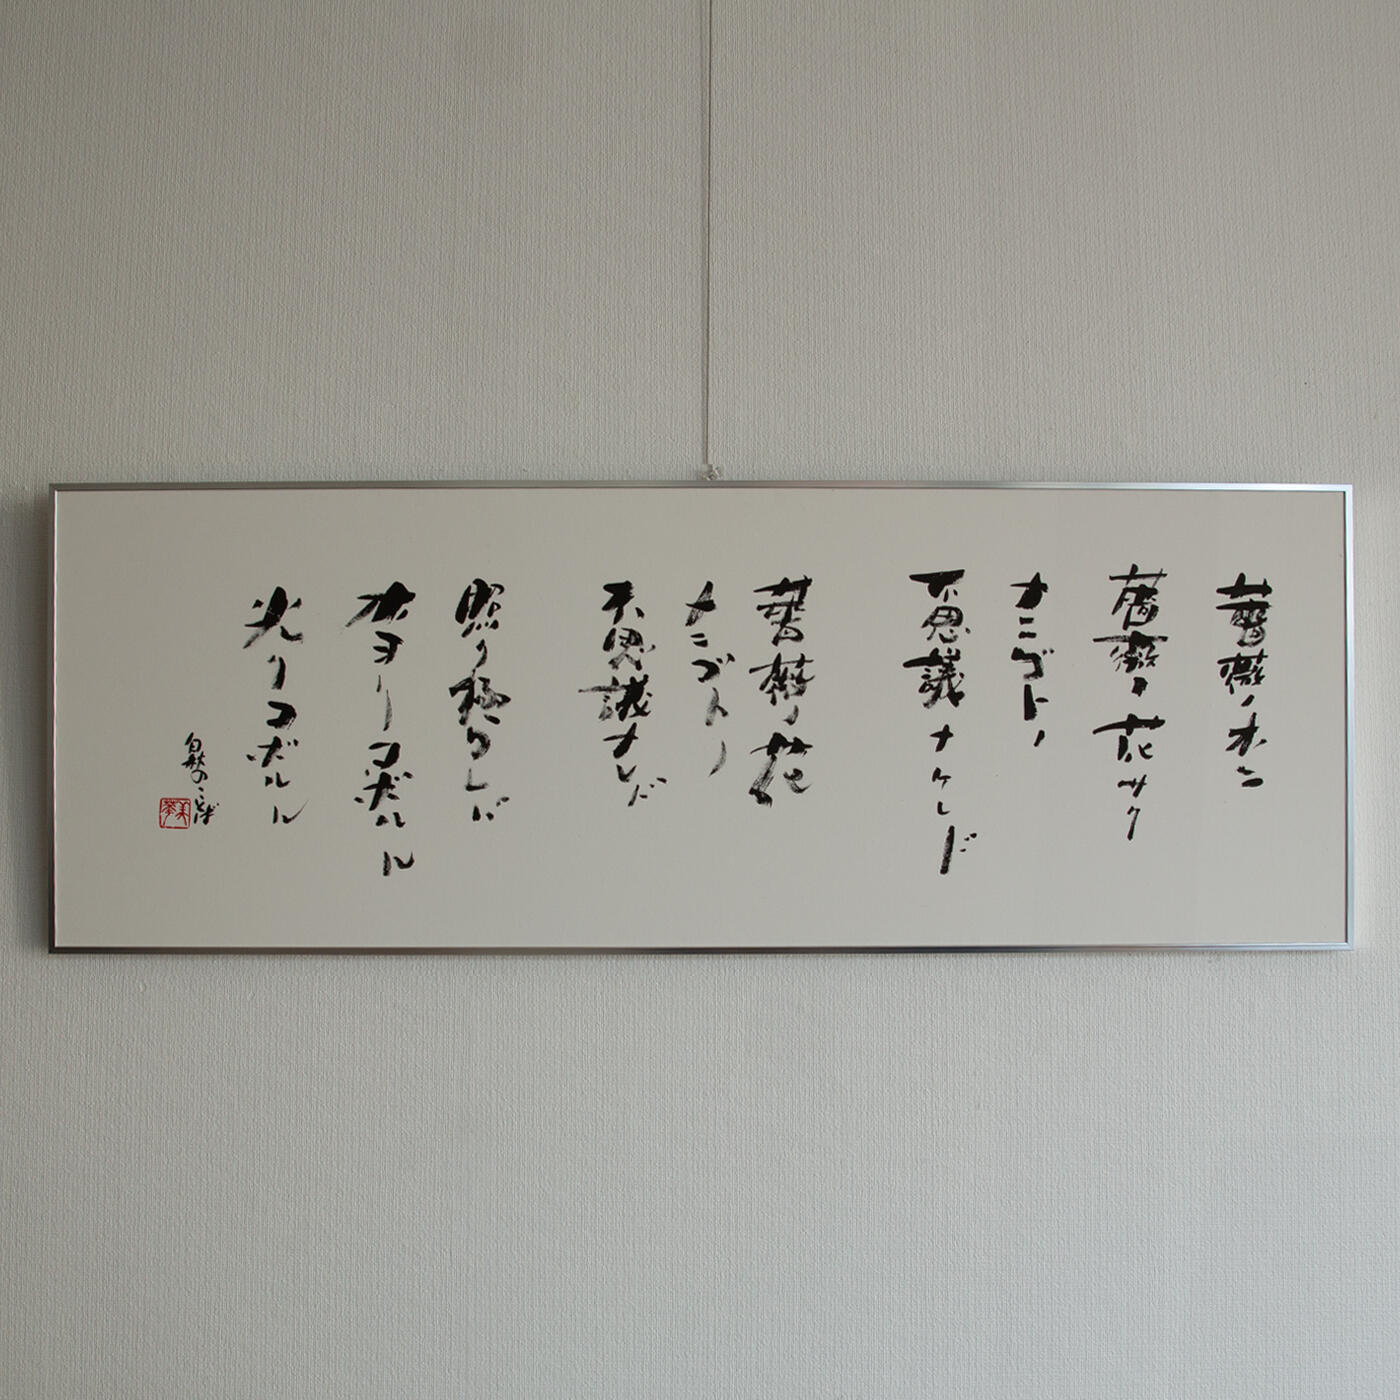 薔薇ノ木ニ
薔薇ノ花サク
ナニゴトノ
不思議ナケレド
薔薇ノ花
ナニゴトノ
不思議ナレド
照リ極マレバ
木ヨリコボルル
光リコボルル
白秋のことば